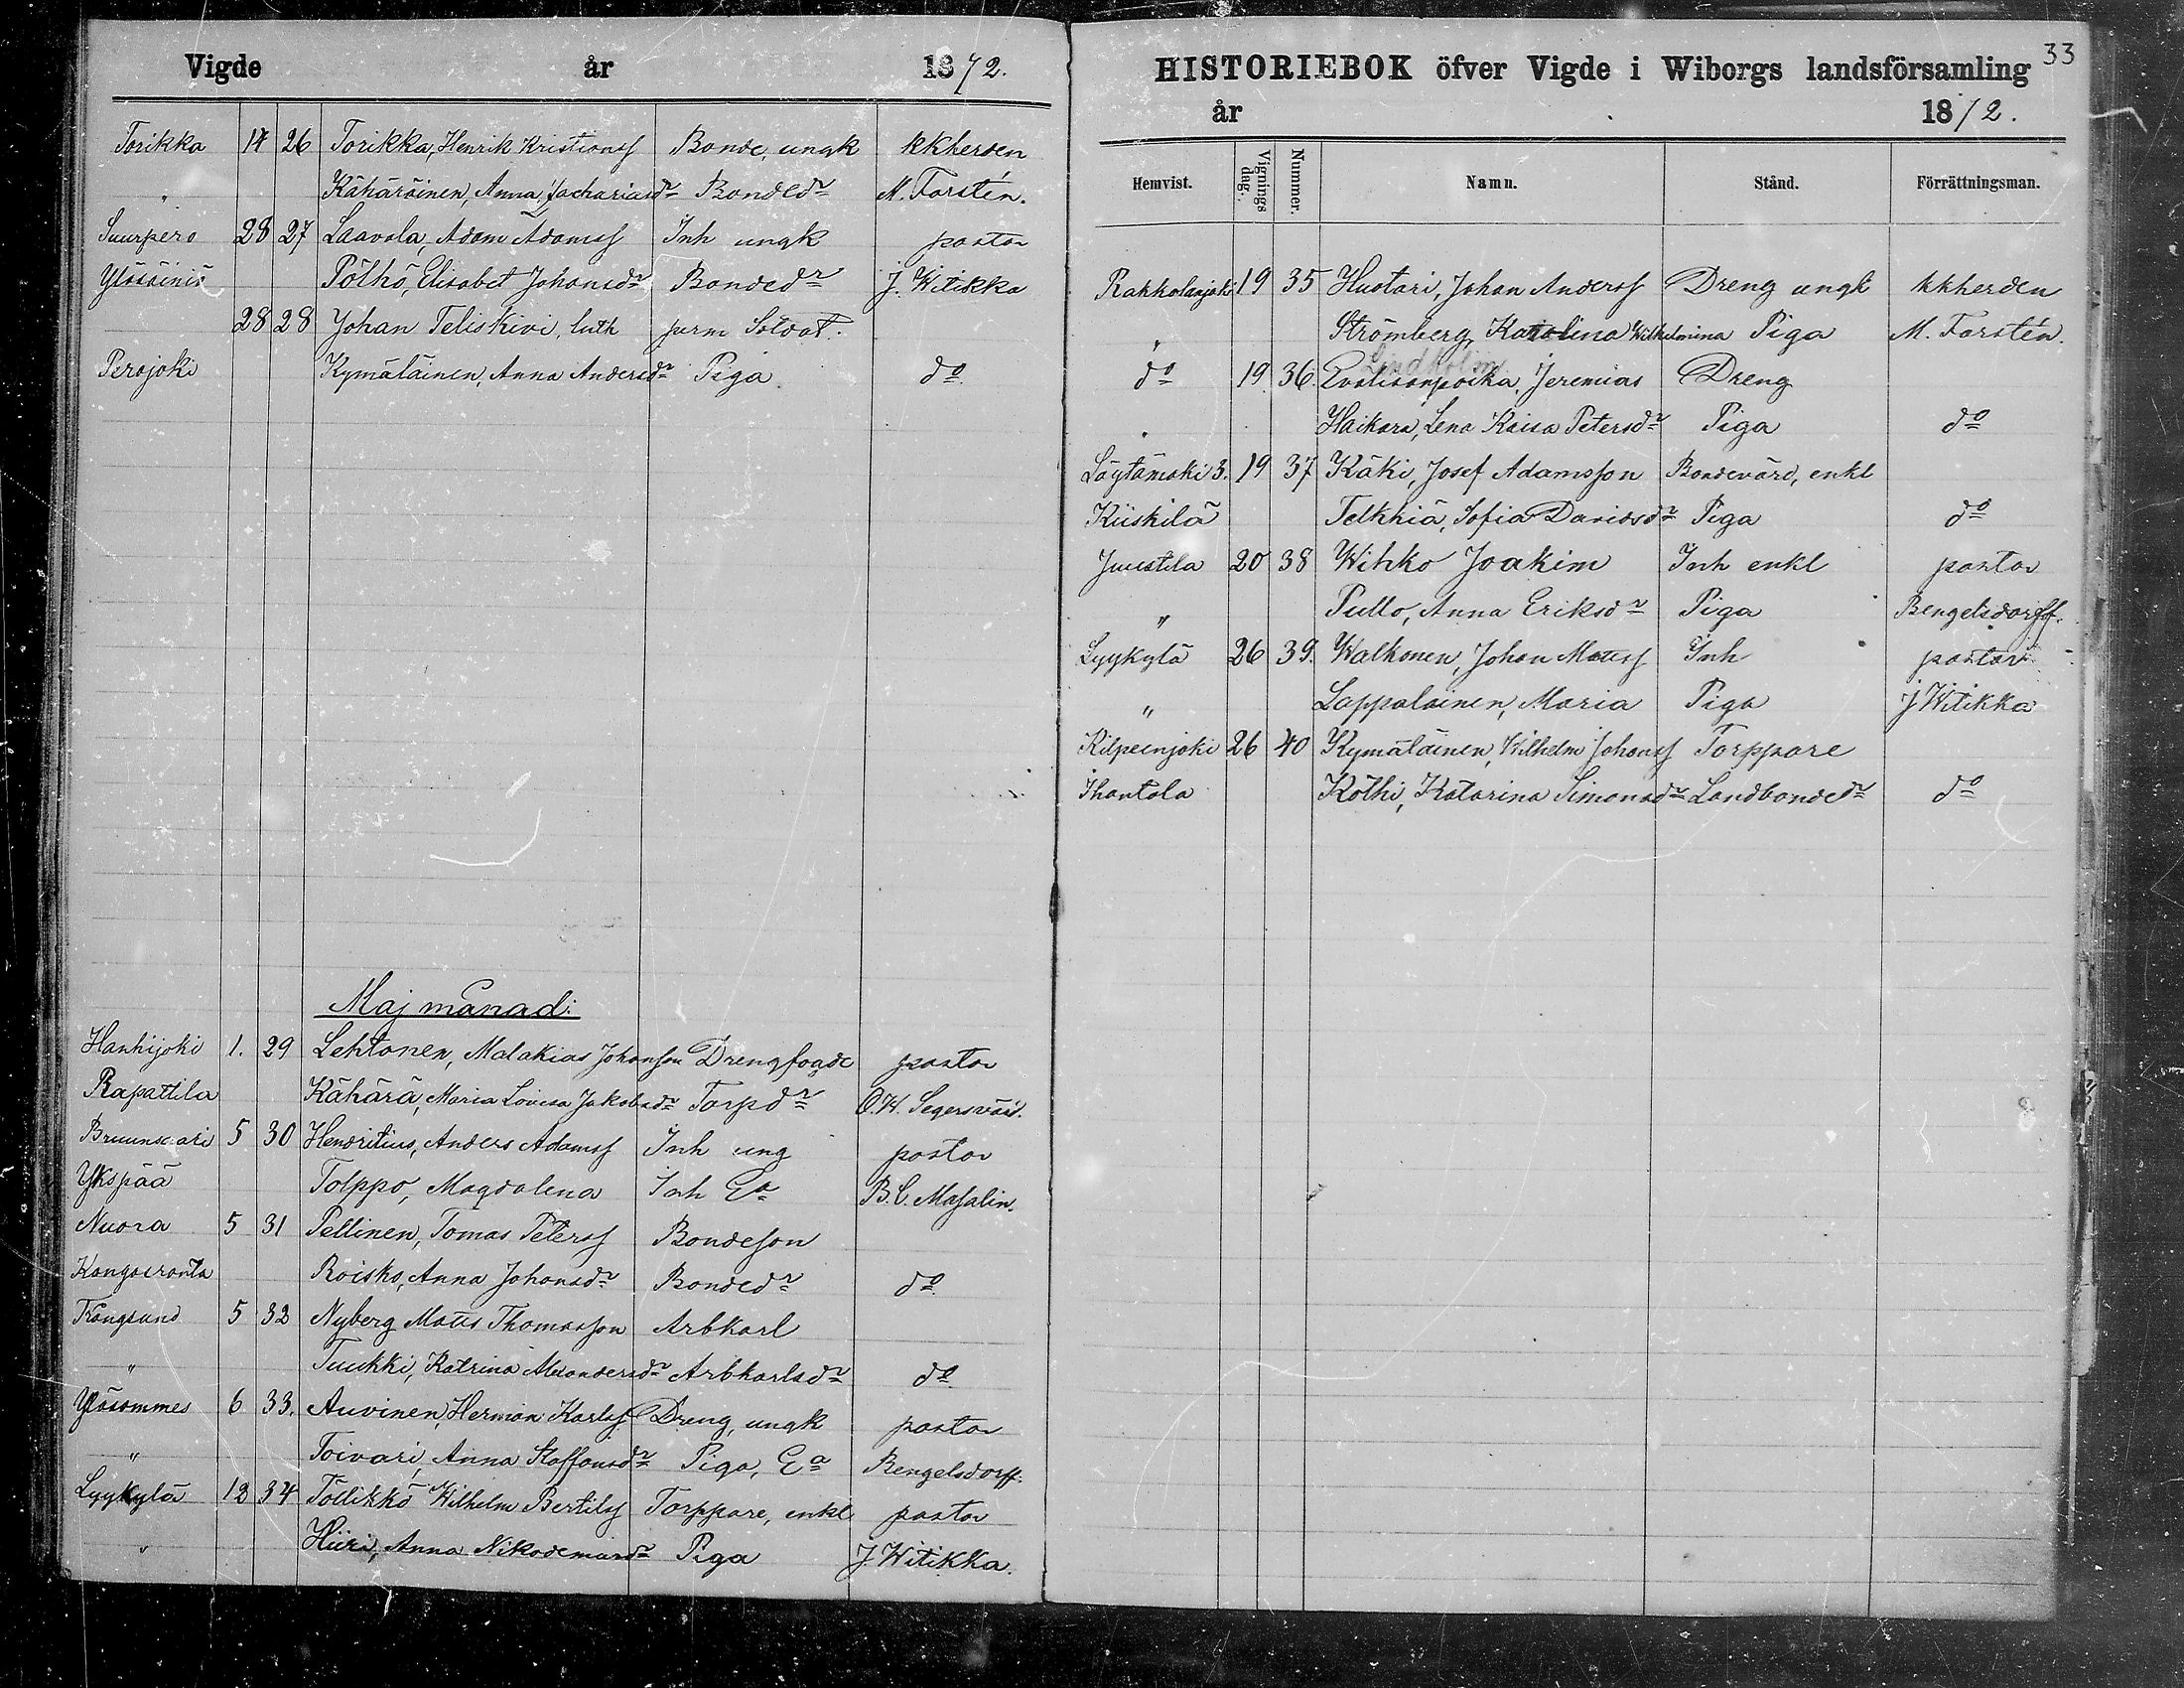 Vigde år 1872.
Torikka 14 26 Torikka, Henrik Kristianss Bonde, ungk kkherden
" Kähäräinen, Anna Zachariasdr Bondedr M. Forstén.
Suurpero 28 27 Laavola, Adam Adamss Inh ungk pastor
Yläsäiniö Pölhö, Elisabet Johansdr Bondedr J. Witikka
28 28 Johan Teliskivi, luth perm Soldat.
Perojoki Kymäläinen, Anna Andersdr Piga do
Maj månad:
Hanhijoki 1. 29 Lehtonen, Malakias Johansson Drengfogde pastor
Rapattila Kähärä, Maria Lovisa Jakobsdr Torpdr O.W. Segersvärd.
5 30 Hendritius, Anders Adamss Inh ung pastor
Ykspää Tolppo, Magdalena Inh Ea B.C. Masalin.
Nuora 5 31 Pellinen, Tomas Peterss Bondeson
Roisko, Anna Johansdr Bondedr do
Trångsund 5 32 Nyberg Matts Thomasson Arbkarl
" Tuukki, Katrina Alexandersdr Arbkarlsdr do
Yläsommes 6 33. Auvinen, Herman Karlss Dreng, ungk pastor
" Toivari, Anna Staffansdr Piga, Ea Bengelsdorff.
Lyykylä 12 34 Töllikkö Wilhelm Bertilss Torppare, enkl pastor
" Hiiri, Anna Nikodemusdr Piga J. Witikka.
33
HISTORIEBOK öfver Vigde i Wiborgs landsförsamling
år 1872.
Hemvist. Vignings dag. Nummer. Namn. Stånd. Förrättningsman.
Rakkolanjoki 19 35 Huotari, Johan Anderss Dreng ungk kkherden
" Strömberg, Karolina Wilhelmina Piga M. Forstén.
Lindholm
do 19 36. Evalisanpoika, Jeremias Dreng
" Haikara, Lena Kaisa Petersdr Piga do
Löytämäki 3. 19 37 Käki, Josef Adamsson Bondevärd, enkl
Kiiskilä Telkkiä, Sofia Davidsdr Piga do
Juustila 20 38 Wihko Joakim Inh enkl pastor
" Pullo, Anna Eriksdr Piga Bengelsdorff.
Lyykylä 26 39. Walkonen, Johan Matss Inh pastor
" Lappalainen, Maria Piga J Witikka
Kilpeenjoki 26 40 Kymäläinen, Wilhelm Johanss Torppare
Ihantala Köthi, Katarina Simonsdr Landbondedr do